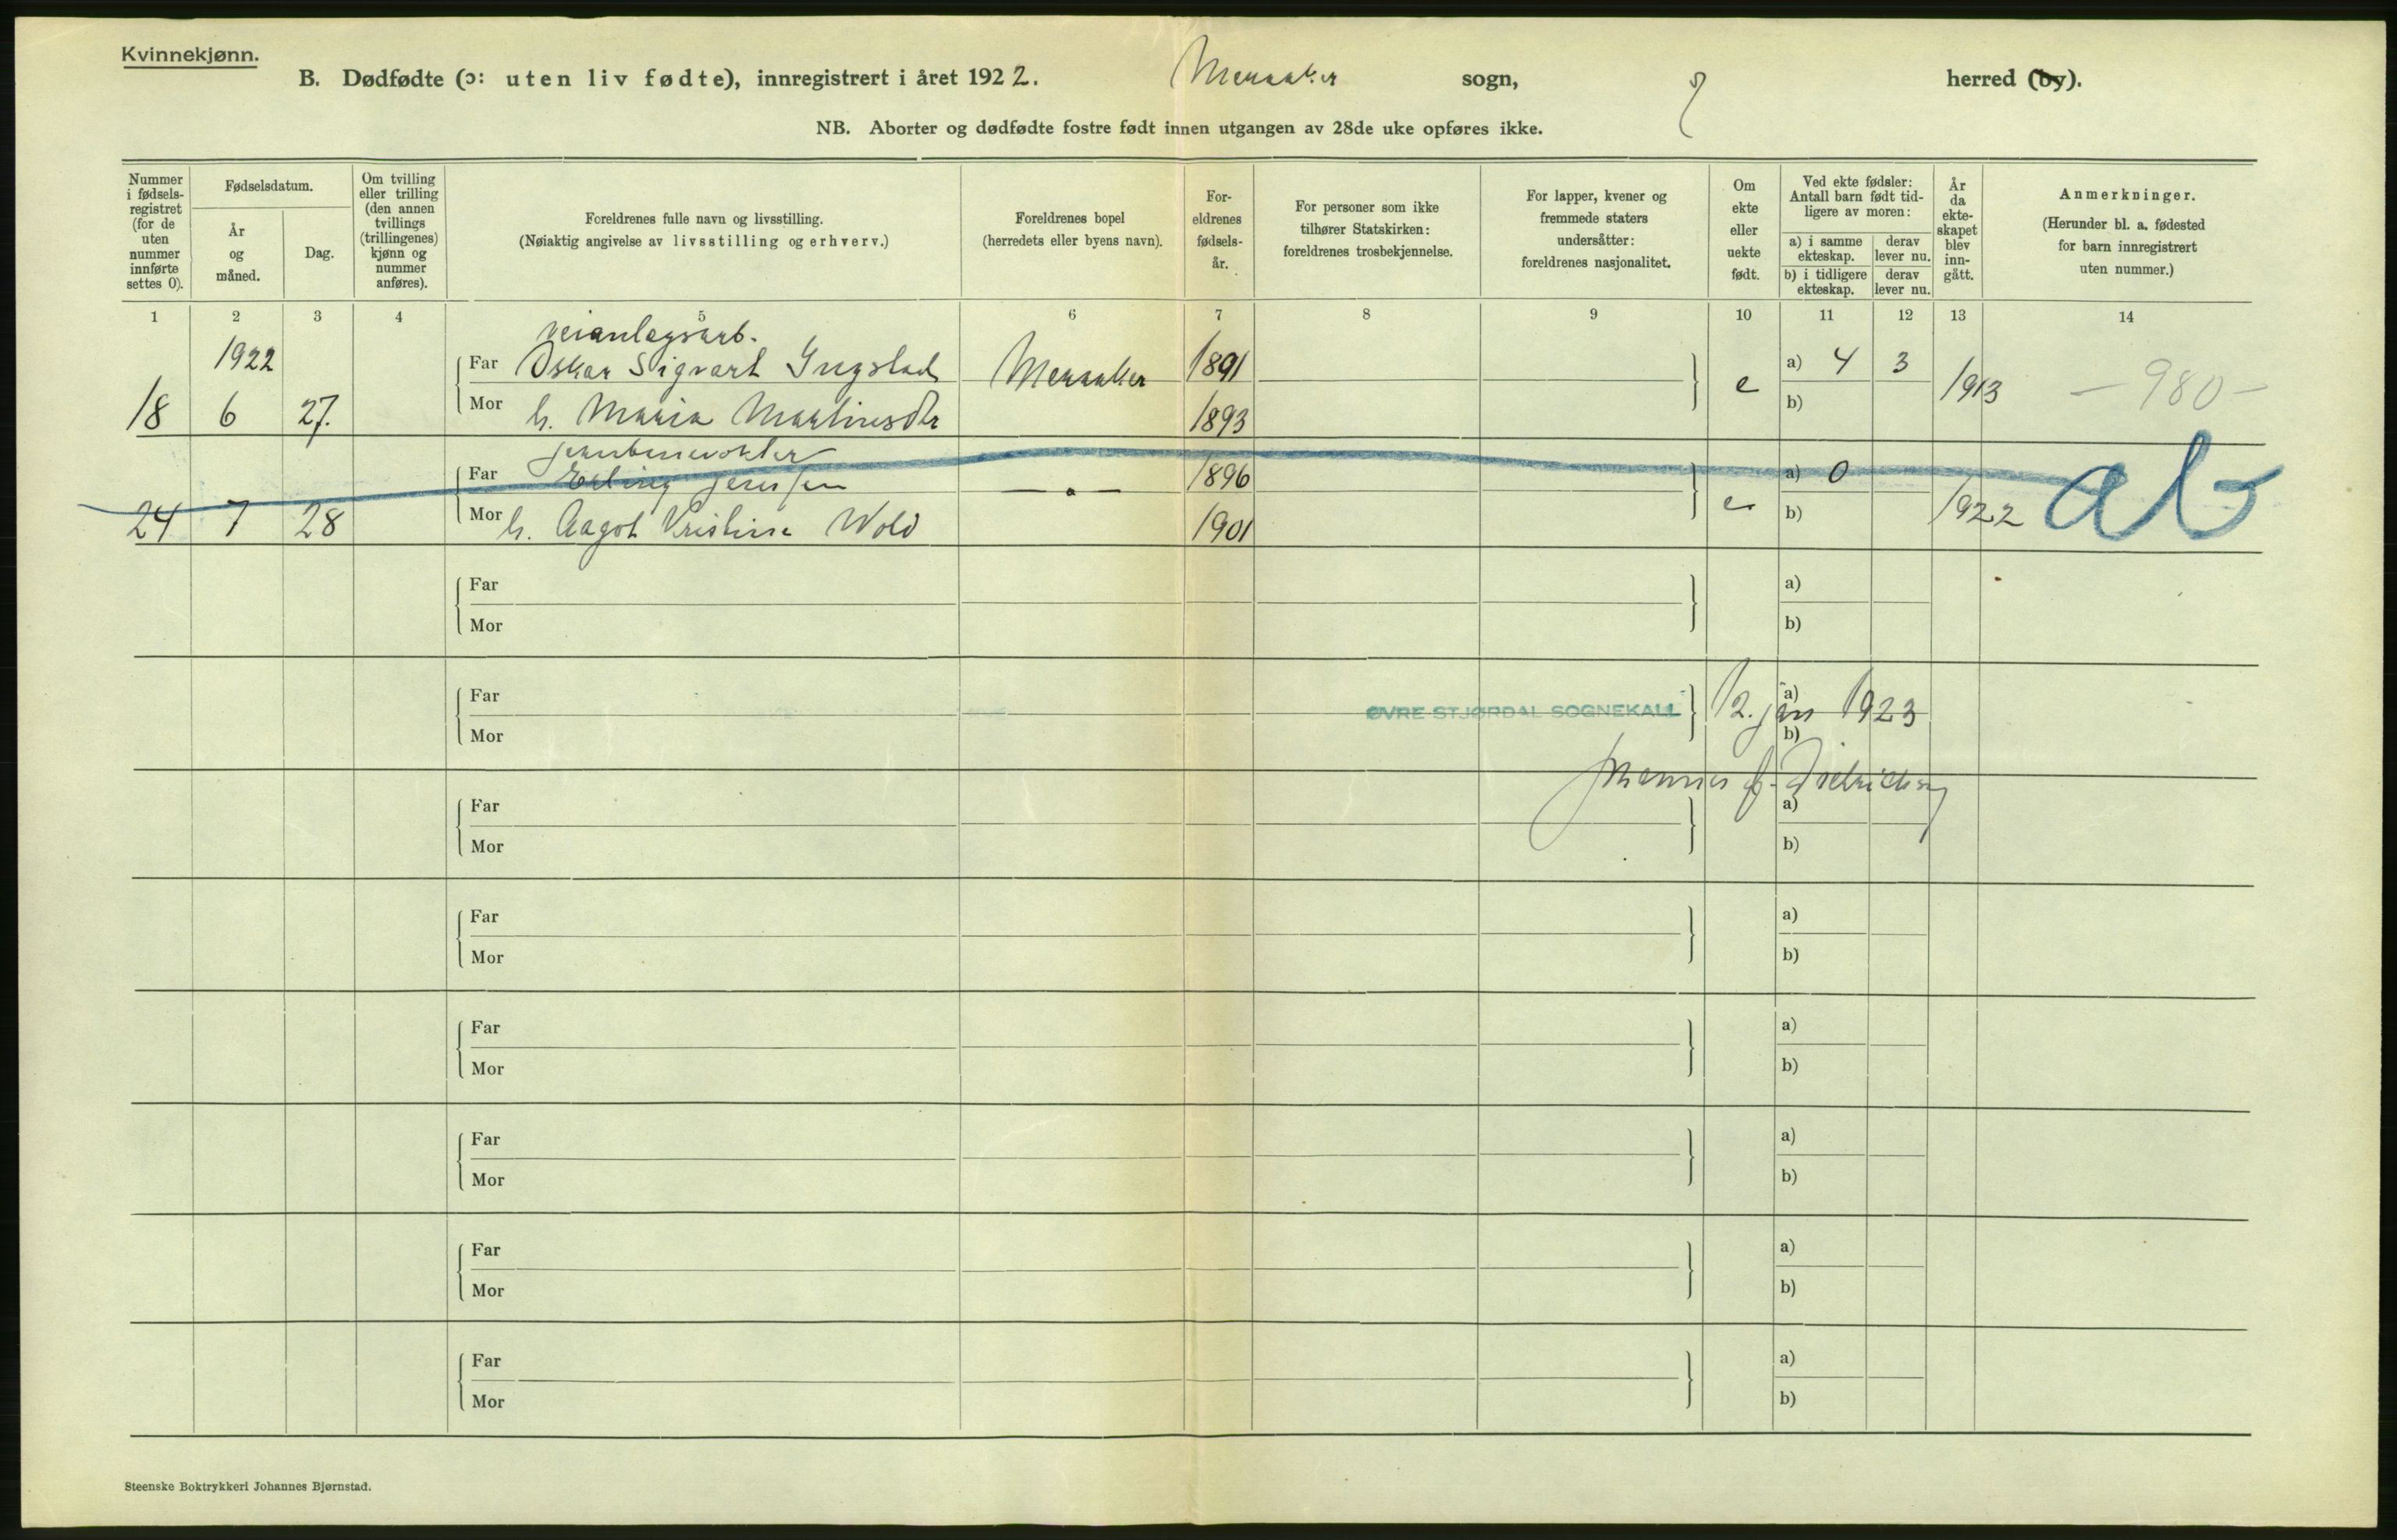 Kvinnekjønn.
B. Dødfødte (ɔ: uten liv fødte), innregistrert i året 1922. Meraaker sogn, herred (by).
NB. Aborter og dødfødte fostre født innen utgangen av 28de uke opføres ikke.
Nummer i fødsels-registret (for de uten nummer innførte settes 0).
Fødselsdatum.
År og måned.
Dag.
Om tvilling eller trilling (den annen tvillings (trillingenes) kjønn og nummer anføres).
Foreldrenes fulle navn og livsstilling.
(Nøiaktig angivelse av livsstilling og erhverv.)
Foreldrenes bopel
(herredets eller byens navn).
For-eldrenes fødsels-år.
For personer som ikke tilhører Statskirken: foreldrenes trosbekjennelse.
For lapper, kvener og fremmede staters undersåtter: foreldrenes nasjonalitet.
Om ekte eller uekte født.
Ved ekte fødsler: Antall barn født tid-ligere av moren:
a) i samme ekteskap.
derav lever nu.
b) i tidligere ekteskap.
derav lever nu.
År da ekte-skapet blev inn-gått.
Anmerkninger.
(Herunder bl. a. fødested for barn innregistrert uten nummer.)
1 2 3 4 5 6 7 8 9 10 11 12 13 14
veianlegsarb.
1922 Far Oskar Sigvart Ingstad Meraaker 1891 e a) 4 3 1913 — 980 —
18 6 27. Mor h. Maria Martinusdtr 1893 b)
Far Erling Jenssen — " — 1896 e a) 0 1922 ab
24 7 28 Mor h. Aagot Kristine Wold 1901 b)
Far a)
Mor b)
Far ØVRE STJØRDAL SOGNEKALL 12. jan 1923 a)
Mor b)
Far a)
Mor b)
Far a)
Mor b)
Far a)
Mor b)
Far a)
Mor b)
Far a)
Mor b)
Far a)
Mor b)
Steenske Boktrykkeri Johannes Bjørnstad.